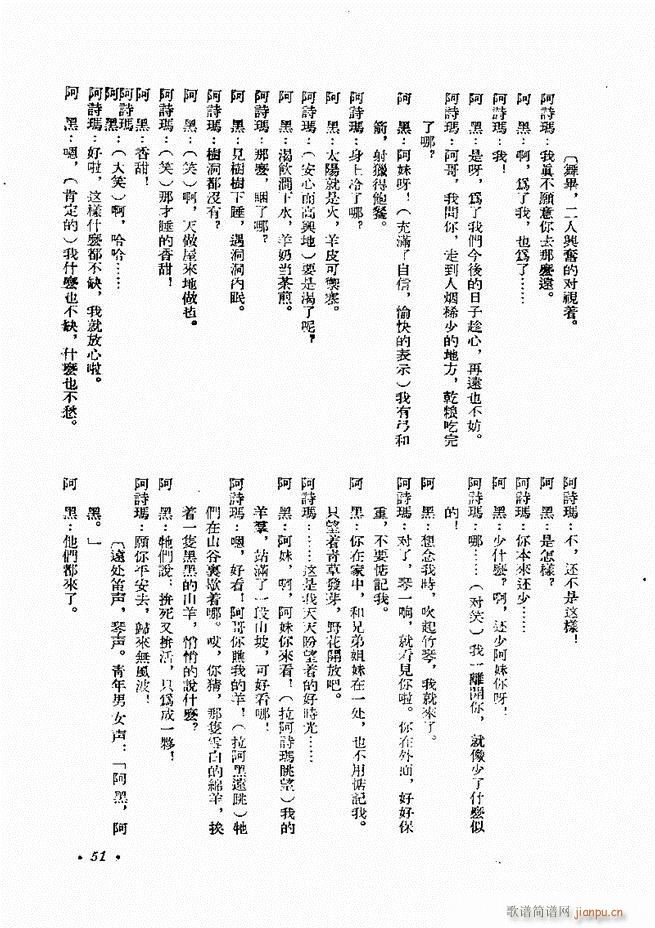 〔舞畢，二人興奮的对視着。
阿詩瑪：我眞不願意你去那麼遠。
阿　黑：啊，爲了我，也爲了……
阿詩瑪：我！
阿　黑：是呀，爲了我們今後的日子趁心，再遠也不妨。
阿詩瑪：阿哥，我問你，走到人烟稀少的地方，乾粮吃完
了哪？
阿　黑：阿妹呀！（充滿了自信，愉快的表示）我有弓和
箭，射獵得飽餐。
阿詩瑪：身上冷了哪？
阿　黑：太陽就是火，羊皮可禦寒。
阿詩瑪：（安心而高興地）要是渴了呢？
阿　黑：渴飲澗下水，羊奶当茶煎。
阿詩瑪：那麼，睏了哪？
阿　黑：見樹樹下睡，遇洞洞內眠。
阿詩瑪：樹洞都沒有？
阿　黑：（笑）啊，天做屋來地做毡。
阿詩瑪：（笑）那才睡的香甜！
阿　黑：香甜！
阿詩瑪
阿　黑：（大笑）啊，哈哈……
阿詩瑪：好啦，这樣什麼都不缺，我就放心啦。
阿　黑：嗯，（肯定的）我什麼也不缺，什麼也不愁。
阿詩瑪：不，还不是这樣！
阿　黑：是怎樣？
阿詩瑪：你本來还少……
阿　黑：少什麼？啊，还少阿妹你呀！
阿詩瑪：哪……（对笑）我一離開你，就像少了什麼似
的！
阿　黑：想念我時，吹起竹琴，我就來了。
阿詩瑪：对了，琴一响，就看見你啦。你在外面，好好保
重，不要惦記我。
阿　黑：你在家中，和兄弟姐妹在一处，也不用惦記我。
只望着青草發芽，野花開放吧。
阿詩瑪：……这是我天天盼望着的好時光……
阿　黑：阿妹，啊，阿妹你來看！（拉阿詩瑪眺望）我的
羊羣，站滿了一段山坡，可好看哪！
阿詩瑪：嗯，好看！阿哥你瞧我的羊！（拉阿黑遠眺）牠
們在山谷裏歇着哪。哎，你猜，那隻雪白的綿羊，挨
着一隻黑黑的山羊，悄悄的說什麼？
阿　黑：牠們說：拚死又拚活，只爲成一夥！
阿詩瑪：願你平安去，歸來無風波！
〔遠处笛声，琴声。靑年男女声：「阿黑，阿
黑。」
阿　黑：他們都來了。
· 51 ·
歌谱简谱网 jianpu.cn